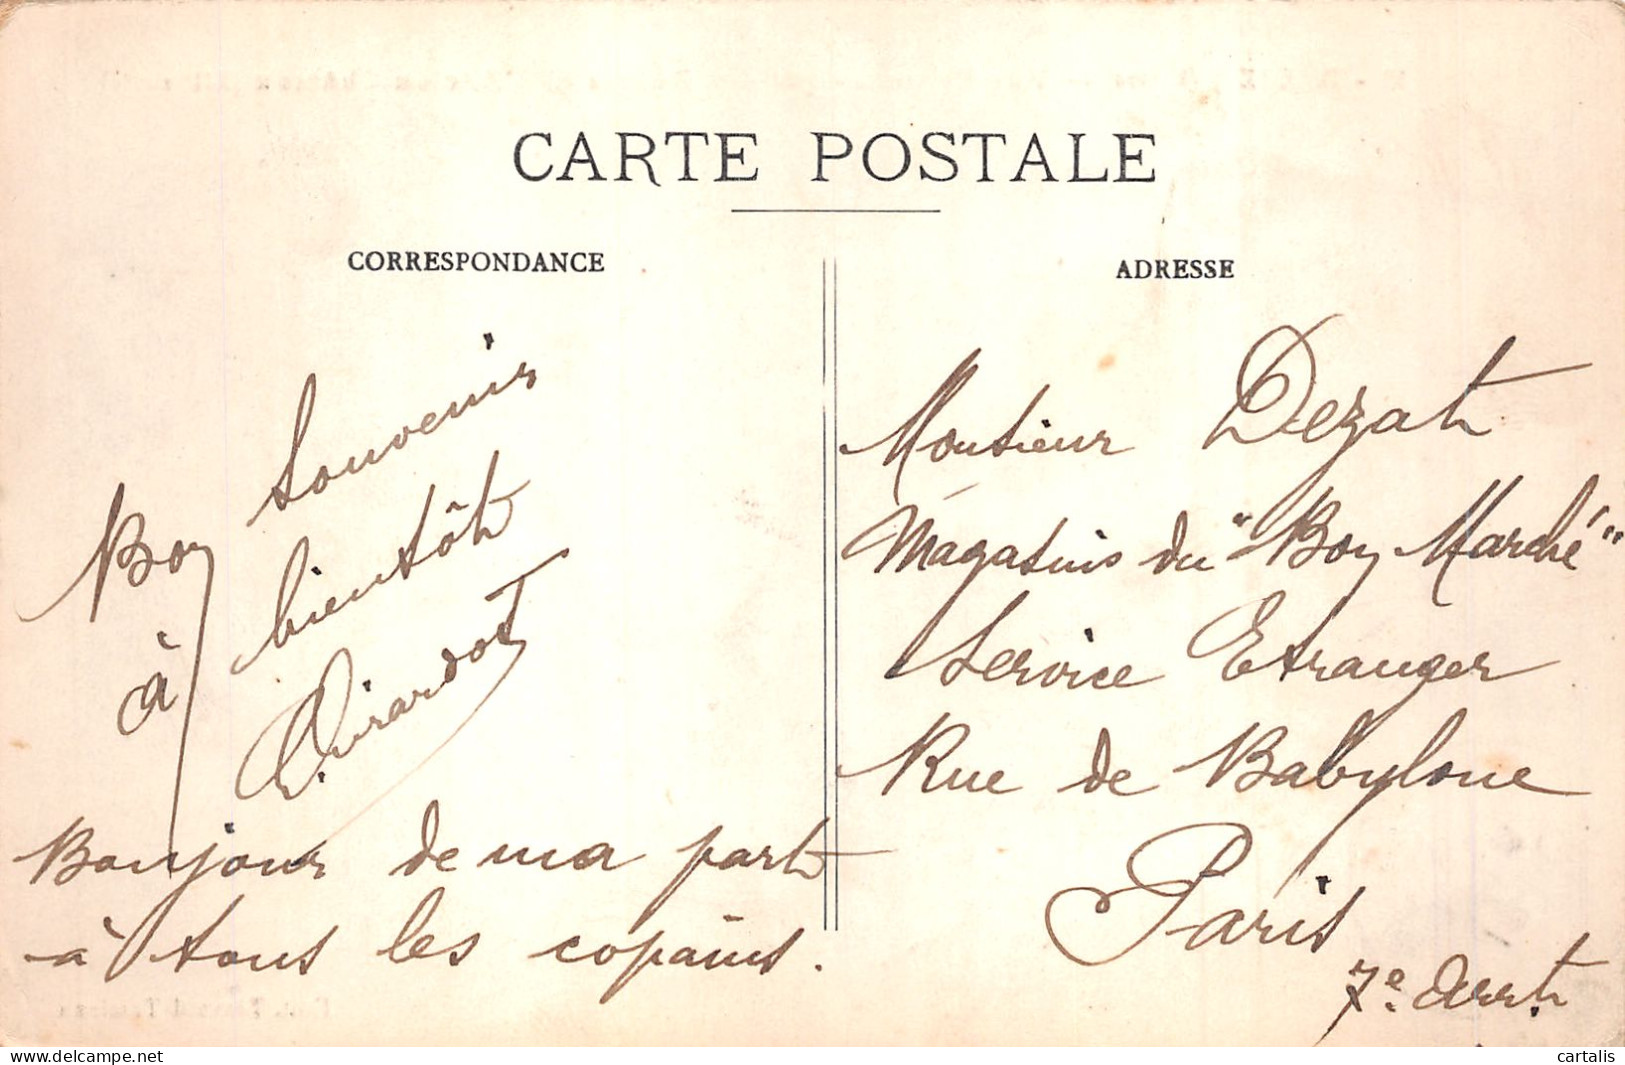 CARTE POSTALE
CORRESPONDANCE
Bon souvenir
à bientôt
Girardot
Bonjour de ma part
à tous les copains.
ADRESSE
Monsieur Dezat
Magasins du "Bon Marché"
Service Etranger
Rue de Babylone
Paris
7e. Arrt.
delcampe.net
cartalis